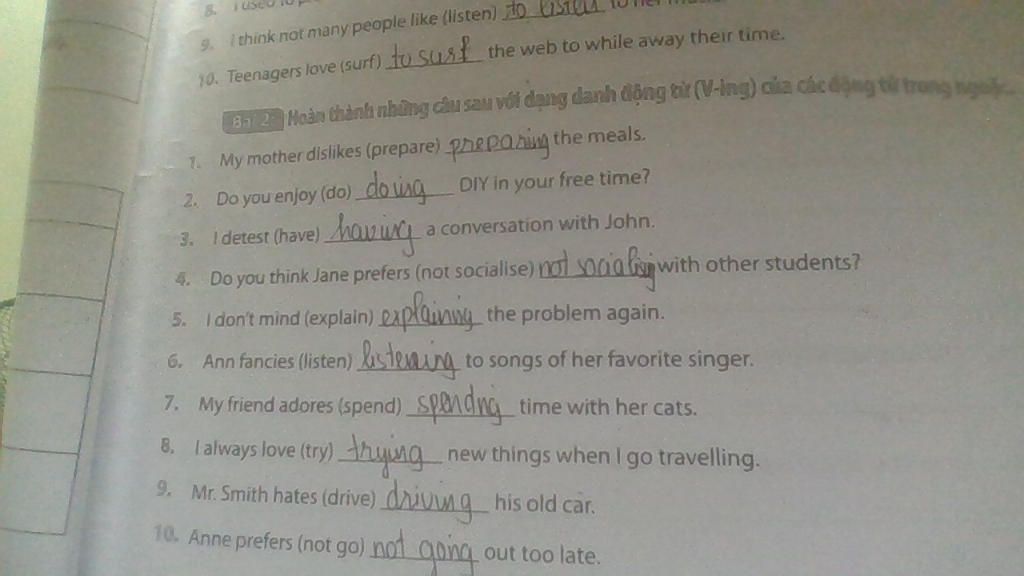 8. I used to
9. I think not many people like (listen) to listen to her
10. Teenagers love (surf) to surf the web to while away their time.
Bài 2: Hoàn thành những câu sau với dạng danh động từ (V-ing) của các động từ trong ngoặc.
1. My mother dislikes (prepare) preparing the meals.
2. Do you enjoy (do) doing DIY in your free time?
3. I detest (have) having a conversation with John.
4. Do you think Jane prefers (not socialise) not socialising with other students?
5. I don't mind (explain) explaining the problem again.
6. Ann fancies (listen) listening to songs of her favorite singer.
7. My friend adores (spend) spending time with her cats.
8. I always love (try) trying new things when I go travelling.
9. Mr. Smith hates (drive) driving his old car.
10. Anne prefers (not go) not going out too late.